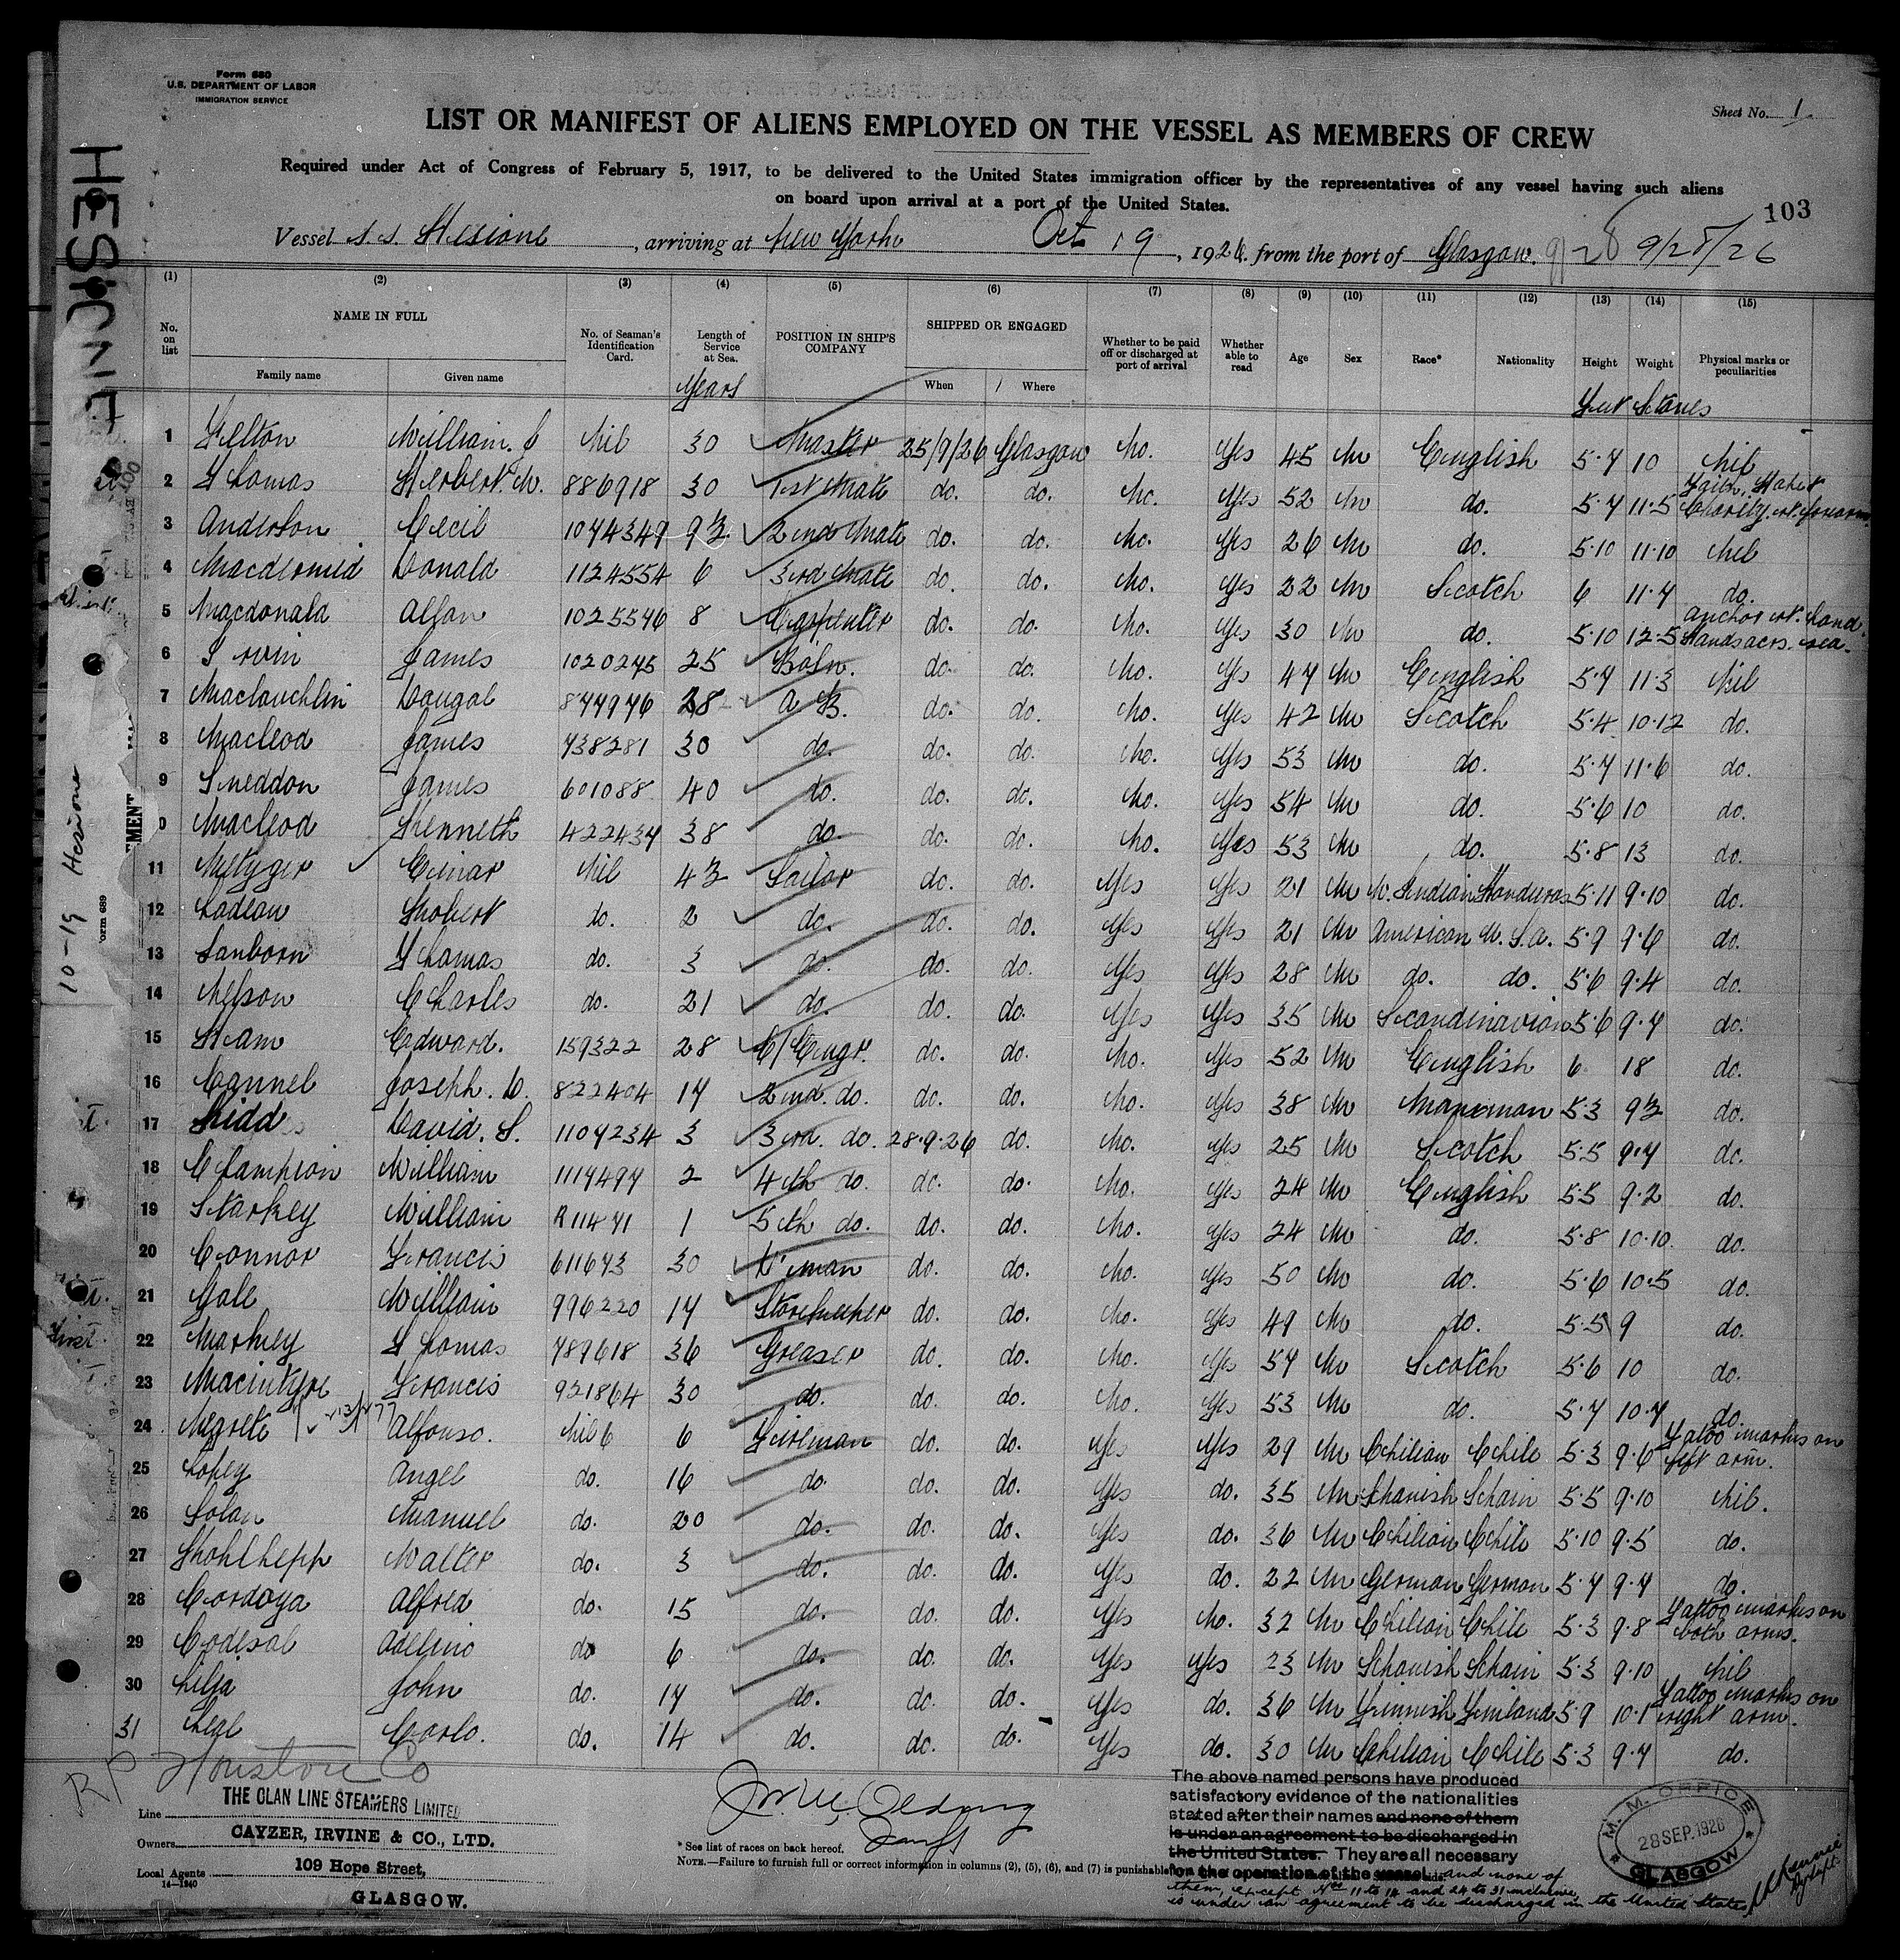 Form 680
U.S. DEPARTMENT OF LABOR
IMMIGRATION SERVICE
Sheet No. 1
LIST OR MANIFEST OF ALIENS EMPLOYED ON THE VESSEL AS MEMBERS OF CREW
Required under Act of Congress of February 5, 1917, to be delivered to the United States immigration officer by the representatives of any vessel having such aliens
on board upon arrival at a port of the United States.
103
Vessel S.S. Hesione, arriving at New York Oct 19, 1926. from the port of Glasgow. 9/28 9/28/26
HESIONE
10-19 Hesione
(1) (2) (3) (4) (5) (6) (7) (8) (9) (10) (11) (12) (13) (14) (15)
No. on list NAME IN FULL No. of Seaman's Identification Card. Length of Service at Sea. POSITION IN SHIP'S COMPANY SHIPPED OR ENGAGED Whether to be paid off or discharged at port of arrival Whether able to read Age Sex Race* Nationality Height Weight Physical marks or peculiarities
Family name Given name Years When Where Feet Stones
1 Felton William. J Nil 30 Master 25/9/26 Glasgow No. Yes 45 M English 5.7 10 Nil
2 Thomas Herbert. W. 886918 30 1st Mate do. do. No. Yes 52 M do. 5.7 11.5 Faith, Hope & Charity. rt. forearm.
3 Anderson Cecil 1074349 9½ 2nd Mate do. do. No. Yes 26 M do. 5.10 11.10 Nil
4 Macdermid Donald 1124554 6 3rd Mate do. do. No. Yes 22 M Scotch 6 11.7 do.
5 Macdonald Allan 1025546 8 Carpenter do. do. No. Yes 30 M do. 5.10 12.5 Anchor rt. hand. Hands acrs. sea.
6 Irvin James 1020275 25 Bosn. do. do. No. Yes 47 M English 5.7 11.3 Nil
7 Maclauchlin Dougal 877976 28 A.B. do. do. No. Yes 42 M Scotch 5.4 10.12 do.
8 Macleod James 738281 30 do. do. do. No. Yes 53 M do. 5.7 11.6 do.
9 Sneddon James 601088 40 do. do. do. No. Yes 54 M do. 5.6 10 do.
0 Macleod Kenneth 422437 38 do. do. do. No. Yes 53 M do. 5.8 13 do.
11 Metzger Einar Nil 4½ Sailor do. do. Yes Yes 21 M W. Indian Honduras 5.11 9.10 do.
12 Ladeau Robert do. 2 do. do. do. Yes Yes 21 M American U.S.A. 5.9 9.6 do.
13 Sanborn Thomas do. 3 do. do. do. Yes Yes 28 M do. do. 5.6 9.4 do.
14 Nelson Charles do. 21 do. do. do. Yes Yes 35 M Scandinavian 5.6 9.7 do.
15 Ham Edward. 159322 28 C/Engr. do. do. No. Yes 52 M English 6 18 do.
16 Cannel Joseph. D. 822404 17 2nd. do. do. do. No. Yes 38 M Manxman 5.3 9½ do.
17 Kidd David. S. 1107234 3 3rd. do. 28.9.26 do. No. Yes 25 M Scotch 5.5 9.7 do.
18 Champion William 1117497 2 4th do. do. do. No. Yes 24 M English 5.5 9.2 do.
19 Starkey William R11471 1 5th do. do. do. No. Yes 24 M do. 5.8 10.10. do.
20 Connor Francis 611673 30 D'man do. do. No. Yes 50 M do. 5.6 10.5 do.
21 Gale William 996220 17 Storekeeper do. do. No. Yes 49 M do. 5.5 9 do.
22 Markey Thomas 789618 36 Greaser do. do. No. Yes 57 M Scotch 5.6 10 do.
23 Macintyre Francis 921864 30 do. do. do. No. Yes 53 M do. 5.7 10.7 do.
24 Negrete Alfonso. Nil 6 6 Fireman do. do. Yes Yes 29 M Chilian Chile 5.3 9.6 Tatoo marks on left arm.
25 Lopez Angel do. 16 do. do. do. Yes do. 35 M Spanish Spain 5.5 9.10 Nil.
26 Solan Manuel do. 20 do. do. do. Yes do. 36 M Chilian Chile 5.10 9.5 do.
27 Kohlhepp Walter do. 3 do. do. do. Yes do. 22 M German German 5.7 9.7 do.
28 Cordoza Alfred do. 15 do. do. do. Yes No. 32 M Chilian Chile 5.3 9.8 Tattoo marks on both arms.
29 Codesal Adelino do 6 do. do. do. Yes Yes 23 M Spanish Spain 5.3 9.10 Nil
30 Lilja John do. 17 do. do. do. Yes do. 36 M Finnish Finland 5.9 10.1 Tattoo marks on right arm.
31 Leal Carlo. do. 14 do. do. do. Yes do. 30 M Chilian Chile 5.3 9.7 do.
R P Houston Co
Line THE CLAN LINE STEAMERS LIMITED
Owners CAYZER, IRVINE & CO., LTD.
Local Agents 109 Hope Street,
14—1240
GLASGOW.
* See list of races on back hereof.
NOTE.—Failure to furnish full or correct information in columns (2), (5), (6), and (7) is punishable
The above named persons have produced
satisfactory evidence of the nationalities
stated after their names and none of them
is under an agreement to be discharged in
the United States. They are all necessary
for the operation of the vessel. and none of
them, except Nos 11 to 14 and 24 to 31 inclusive,
is under an agreement to be discharged in the United States
M. M. OFFICE
28 SEP. 1926
GLASGOW